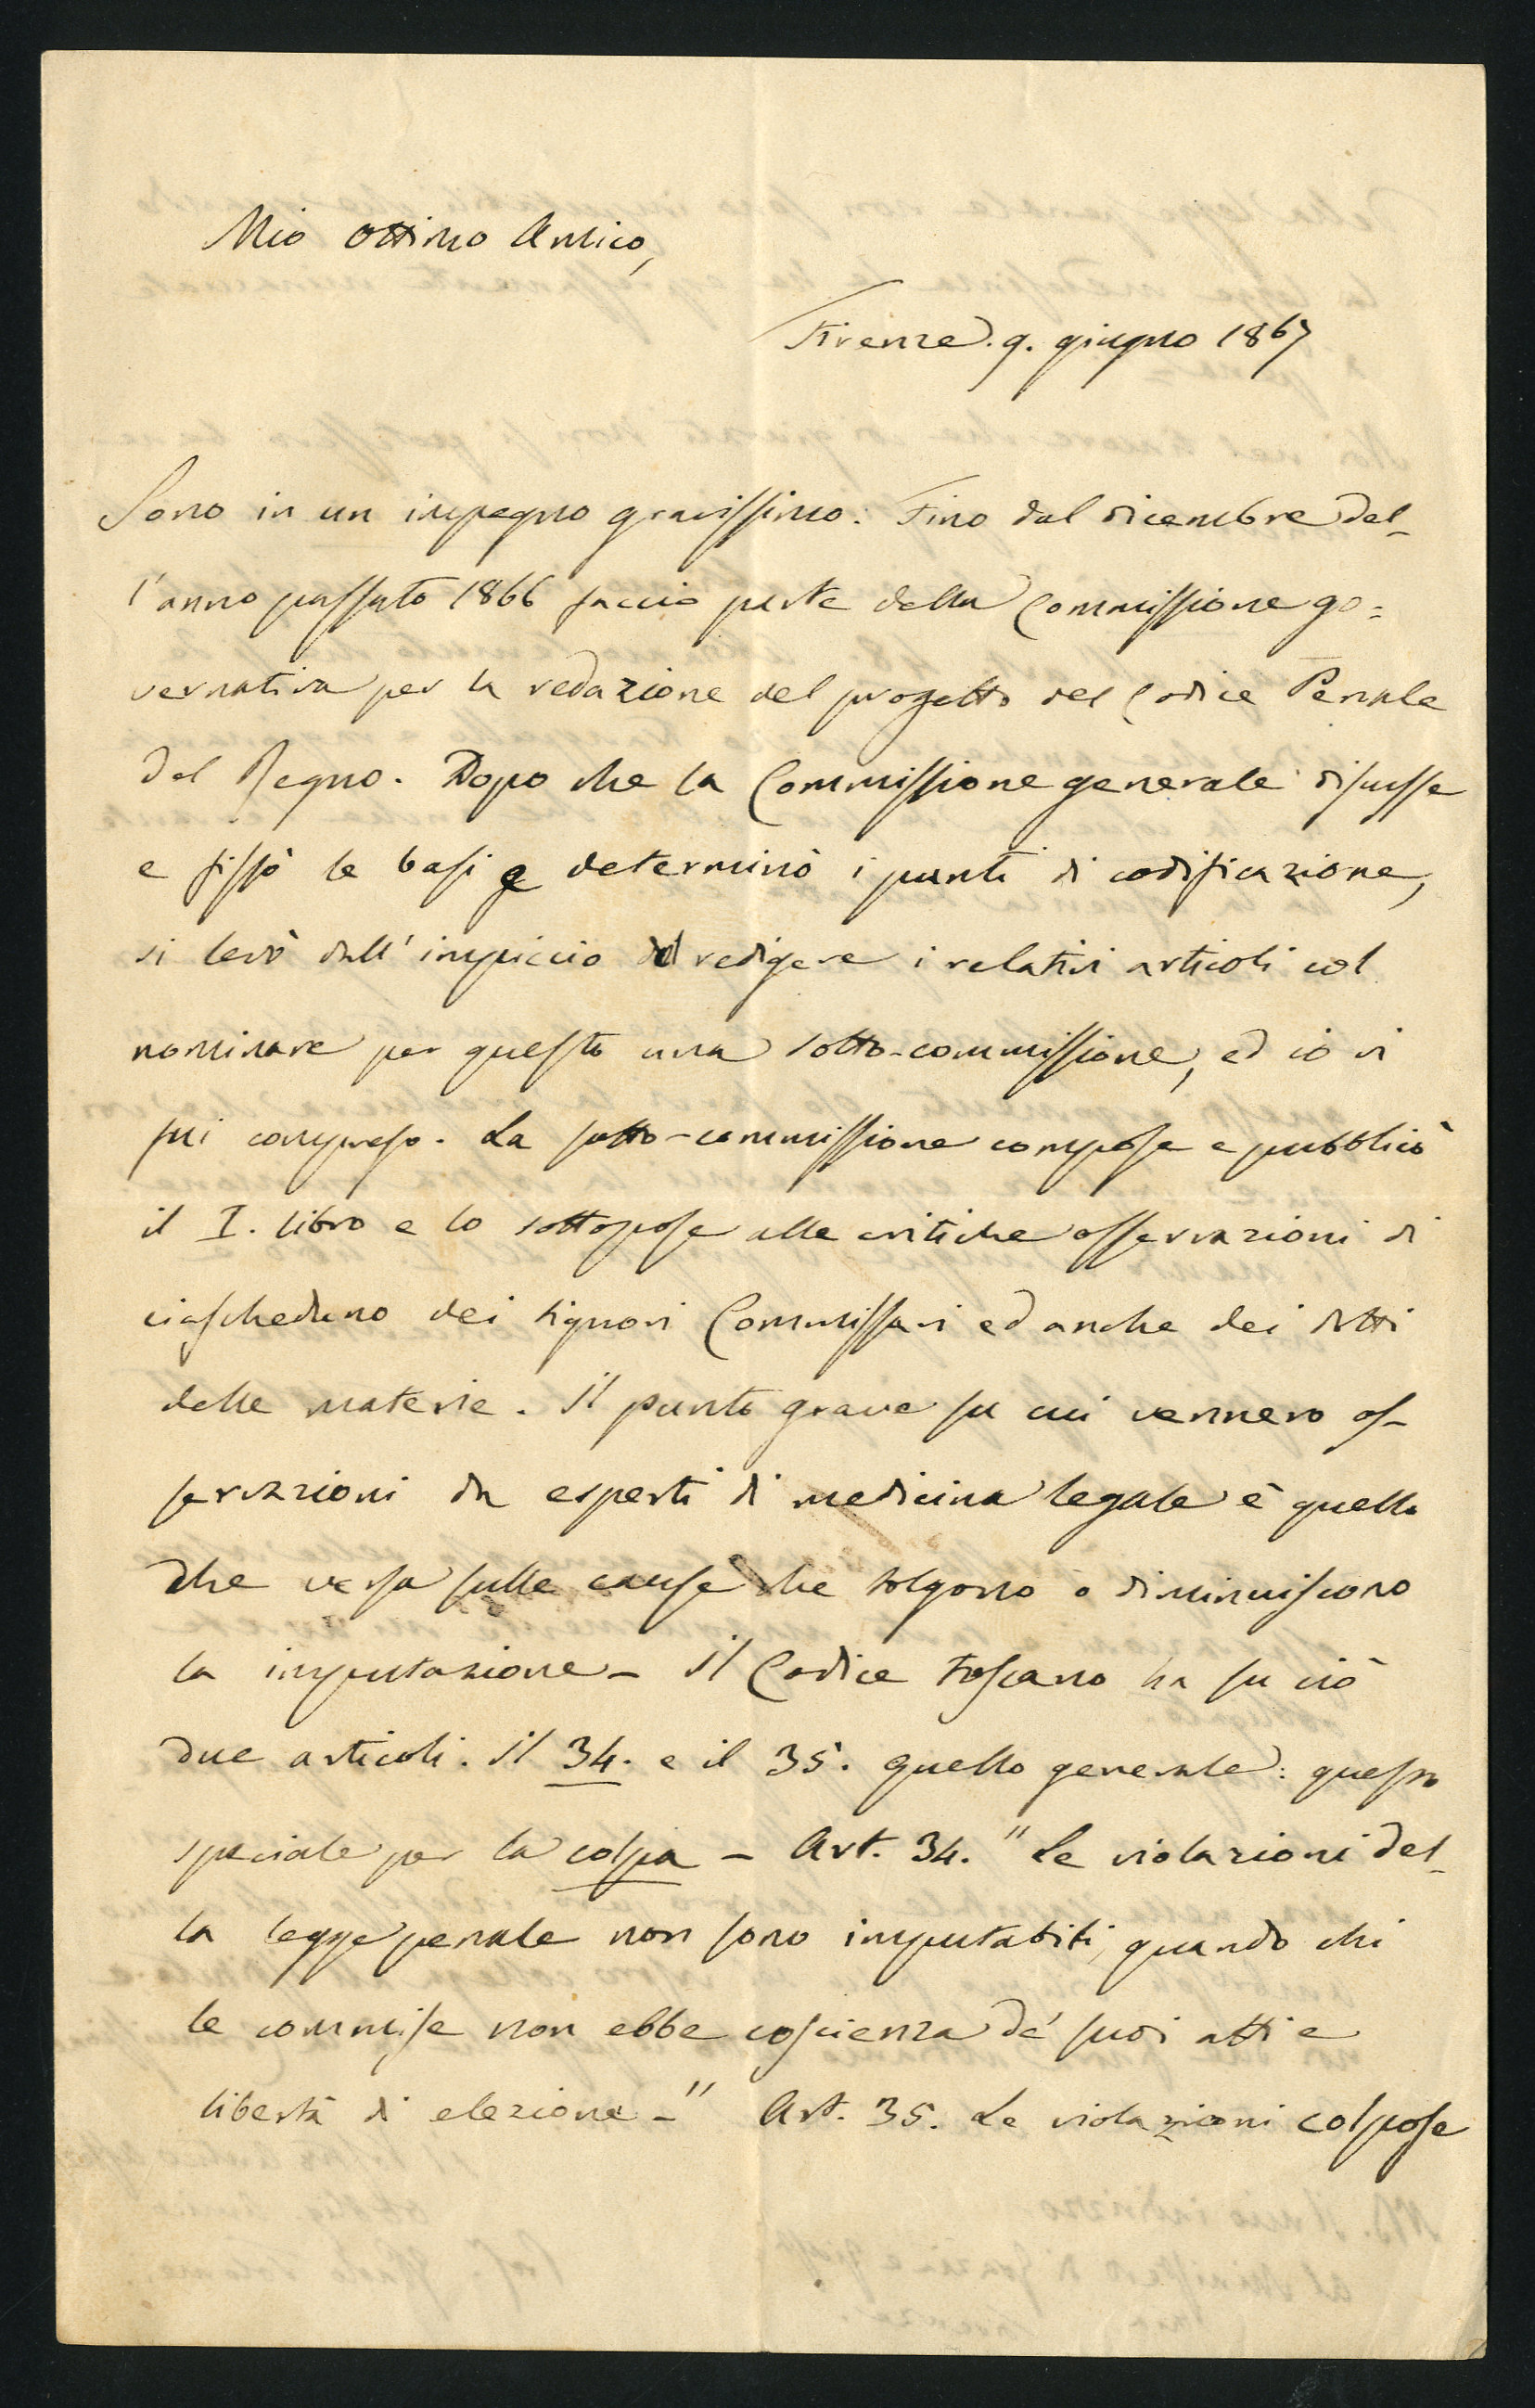 Mio ottimo Amico,
Firenze. 9. giugno 1867
Sono in un impegno gravissimo. Fino dal dicembre del-
l'anno passato 1866 faccio parte della Commissione go=
vernativa per la redazione del progetto del Codice Penale
del Regno. Dopo che la Commissione generale discusse
e fissò le basi e determinò i punti di codificazione,
si levò dall'impiccio di redigere i relativi articoli col
nominare per questo una sotto-commissione, ed io vi
fui compreso. La sotto-commissione compose e pubblicò
il I. libro e lo sottopose alle critiche osservazioni di
ciascheduno dei signori Commissari ed anche dei dotti
delle materie. Il punto grave su cui vennero os-
servazioni da esperti di medicina legale è quello
che versa sulle cause che tolgono o diminuiscono
la imputazione - Il Codice Toscano ha su ciò
due articoli. Il 34. e il 35. quello generale: questo
speciale per la colpa - Art. 34. " Le violazioni del-
la legge penale non sono imputabili, quando chi
le commise non ebbe coscienza de' suoi atti e
libertà di elezione - " Art. 35. Le violazioni colpose